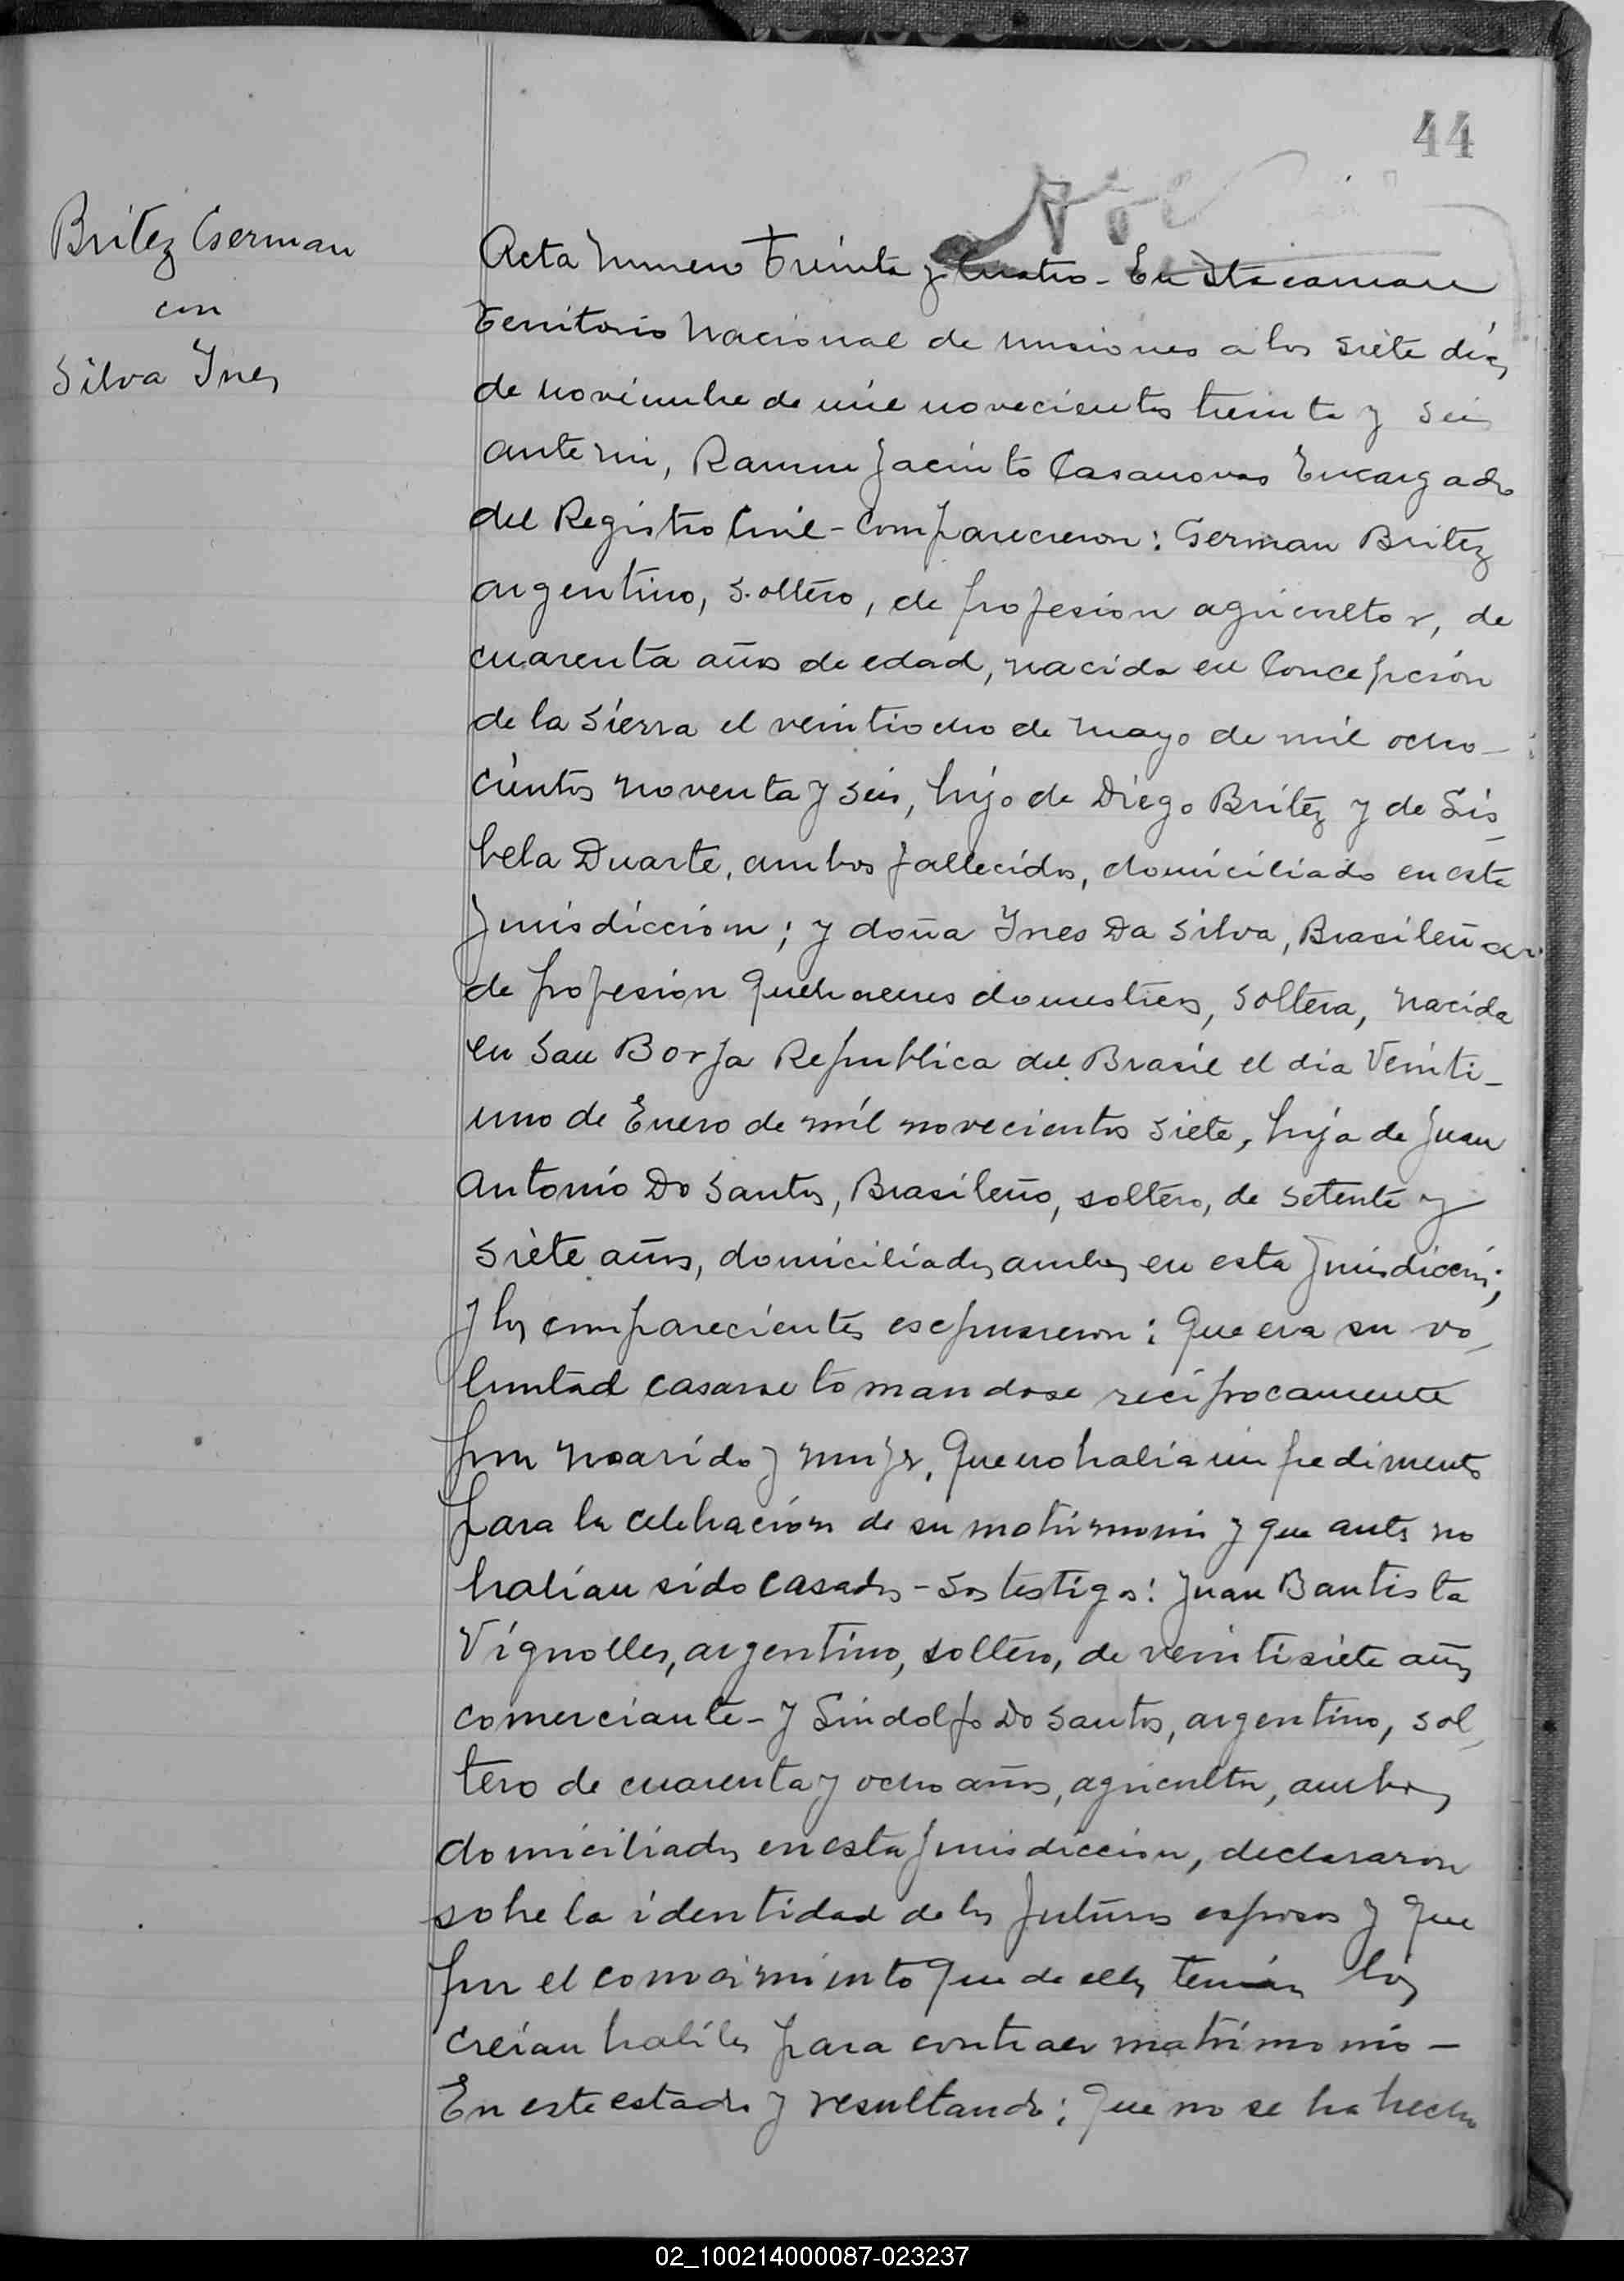 44
Britez German
con
Silva Ynes
Acta numero treinta y cuatro - En Itacaruare
territorio nacional de misiones a los siete días
de noviembre de mil novecientos treinta y seis
ante mi, Ramon Jacinto Casanovas Encargado
del Registro Civil - comparecieron: German Britez
argentino, soltero, de profesion agricultor, de
cuarenta años de edad, nacido en Concepción
de la Sierra el veintiocho de mayo de mil ocho-
cientos noventa y seis, hijo de Diego Britez y de Lis-
bela Duarte, ambos fallecidos, domiciliado en esta
jurisdicción; y doña Ynes Da Silva, Brasileña
de profesion quehaceres domesticos, soltera, nacida
en San Borja Republica del Brasil el dia Veinti-
uno de Enero de mil novecientos siete, hija de Juan
Antonio Do Santos, Brasileño, soltero, de setenta y
siete años, domiciliados ambos en esta jurisdicción;
y los comparecientes escpusieron: que era su vo-
luntad casarse tomandose recíprocamente
por marido y mujer, que no habia impedimento
para la celebración de su matrimonio y que antes no
habian sido casados - Los testigos: Juan Bautista
Vignolles, argentino, soltero, de veintisiete años
comerciante - y Lindolfo Do Santos, argentino, sol-
tero de cuarenta y ocho años, agricultor, ambos
domiciliados en esta jurisdicción, declararon
sobre la identidad de los futuros esposos y que
por el conocimiento que de ellos tenían los
creían habiles para contraer matrimonio -
En este estado y resultando: que no se ha hecho
02_100214000087-023237